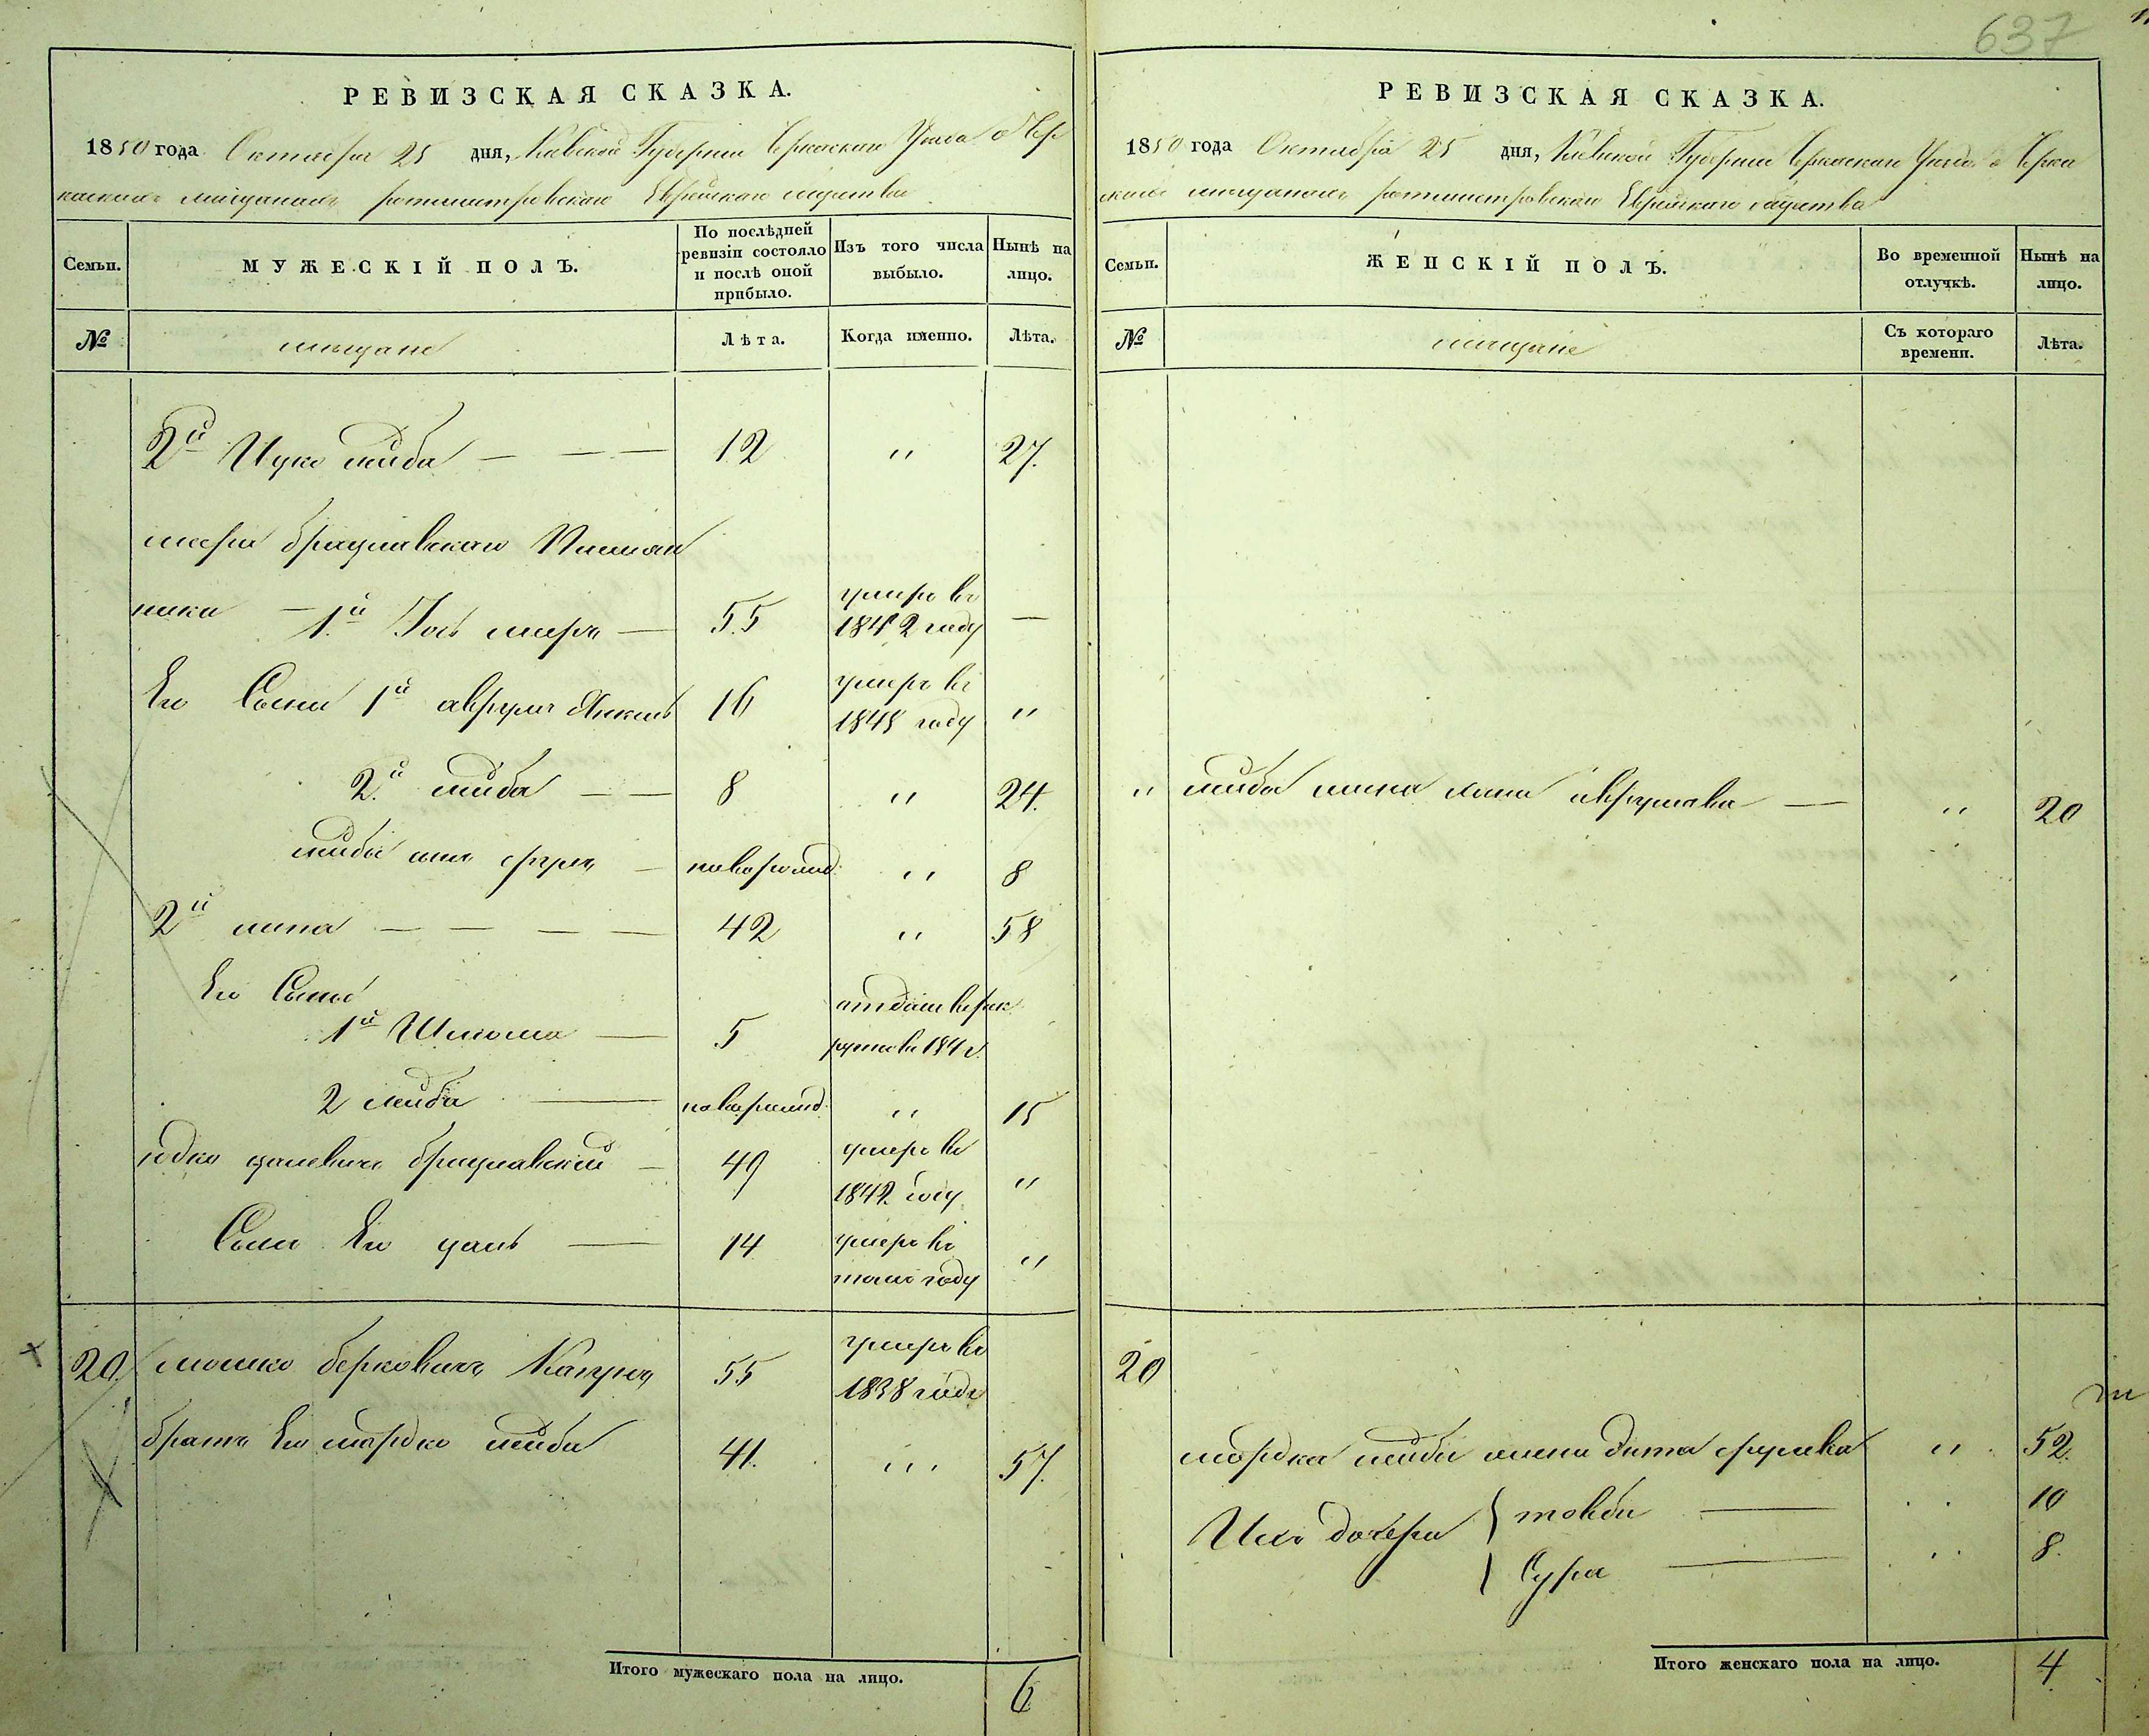 637
РЕВИЗСКАЯ СКАЗКА.
1850 года Октября 25 дня, Киевской Губернии Черкаскаго Уезда о Чер
каскихъ мещанахъ ротмистровскаго Еврейскаго общества
Семьи.
МУЖЕСКІЙ ПОЛЪ.
По послѣдней ревизіи состояло и послѣ оной прибыло.
Изъ того числа выбыло.
Нынѣ на лицо.
№
мещане
Лѣта.
Когда именно.
Лѣта.
2й Ицко лейба — — — 12 " 27.
шмеря брацлавскаго
1й Іось шмеръ — 55 умеръ въ 1842 году —
Его Сыни 1й аврумъ Янкель 16 умеръ въ 1848 году "
2й лейба — — 8 " 24.
лейби сынъ сруль — новорожд: " 8
2й липа — — — — 42 " 58
Его Сыны
1й Шлиома — 5 отданъ въ рек рути въ 184 г.
2 лейба — новорожд. " 15
іодко цалевичъ брацлавскій — 49 умеръ въ 1842 году "
Сынъ Его цаль — 14 умеръ въ томъ году "
20. мошко берковичъ Капунъ 55 умеръ въ 1838 годе
братъ Его мордко лейба 41. " 57.
Итого мужескаго пола на лицо.
6
РЕВИЗСКАЯ СКАЗКА.
1850 года Октября 25 дня, Киевской Губернии Черкаскаго Уезда о Черка
скихъ мещанахъ ротмистровскаго Еврейскаго общества
Семьи.
ЖЕНСКІЙ ПОЛЪ.
Во временной отлучкѣ.
Нынѣ на лицо.
№
мещане
Съ котораго времени.
Лѣта.
" лейба жена хана аврумова — " 20
20
мордка лейби жена Дита срулева " 52.
Ихъ дочери { товби — 10
{ Сура — 8.
Итого женскаго пола на лицо.
4